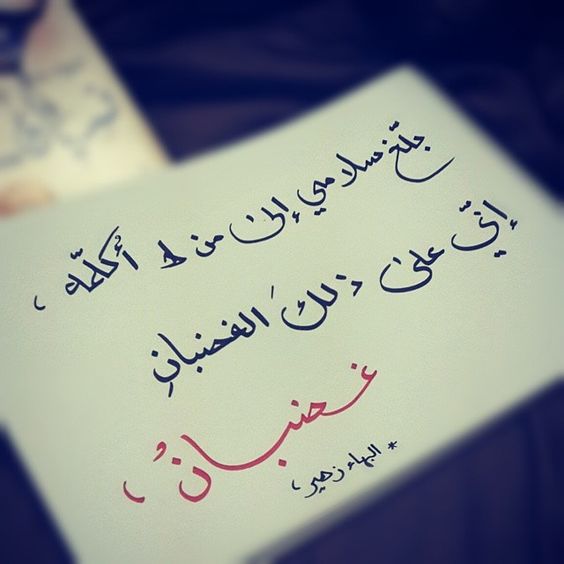 بلّغ سلامي إلى من لا أكلّمه ،
إنّي على ذلكَ الغضبانِ
غضبانُ ،
* البهاء زهير ،